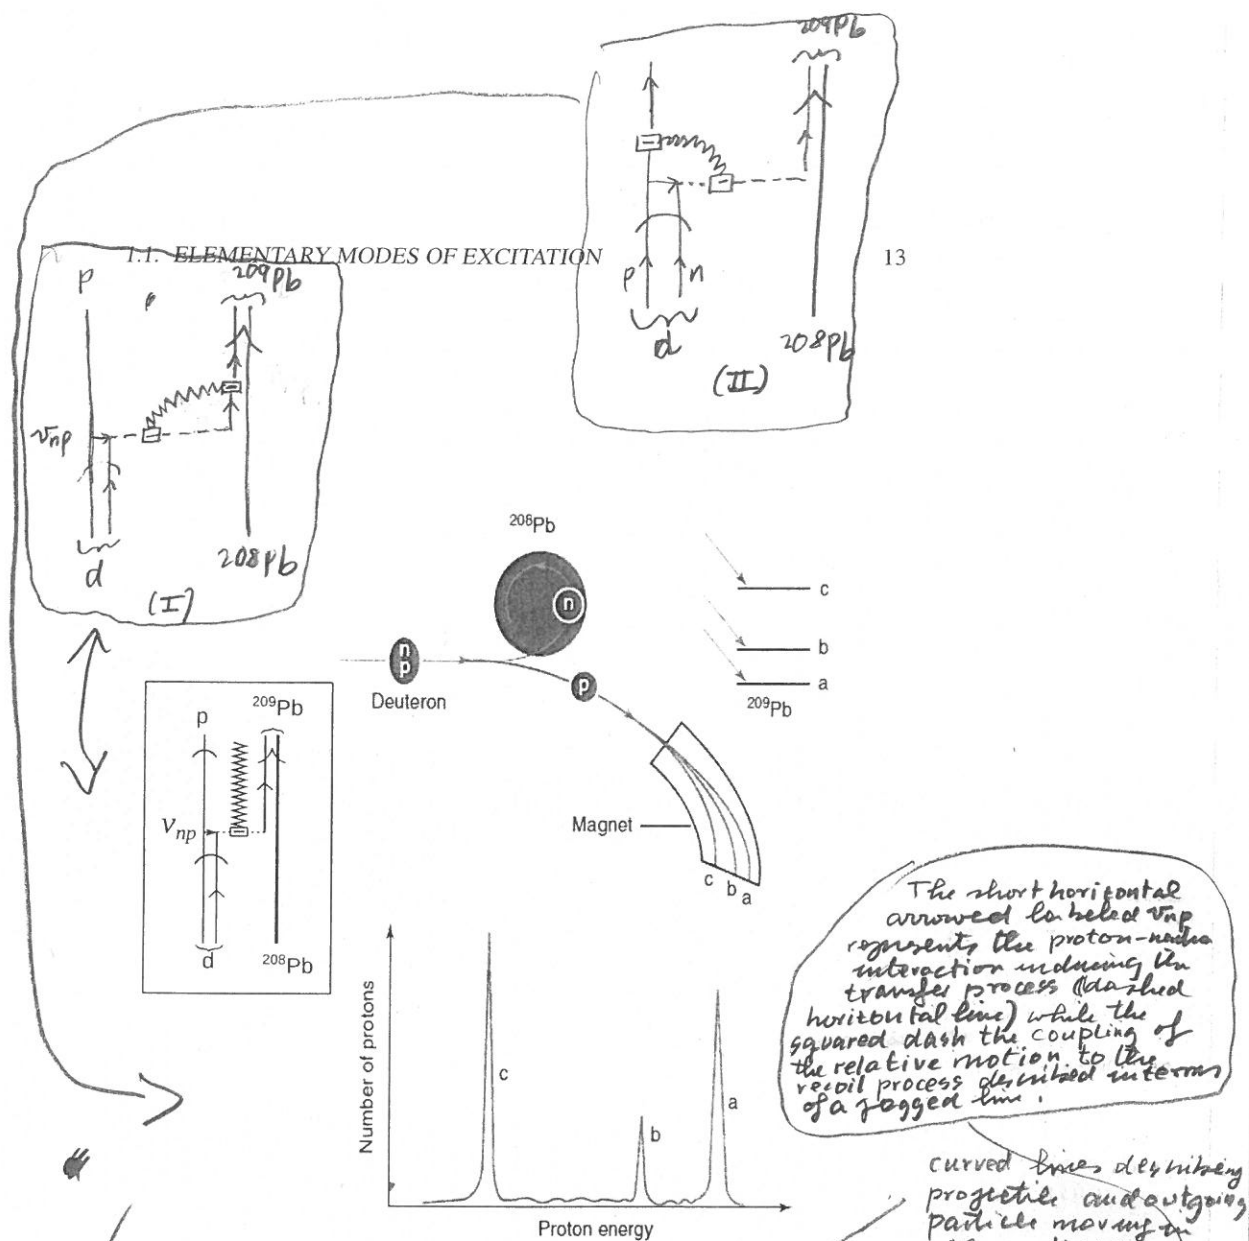 209Pb
1.1. ELEMENTARY MODES OF EXCITATION 13
p n
d
208Pb
(II)
p
209Pb
vnp
d
208Pb
(I)
208Pb
n
n
p
Deuteron
p
c
b
a
209Pb
Magnet
c b a
p
209Pb
vnp
d
208Pb
Number of protons
c
b
a
Proton energy
The short horizontal
arrowed labeled vnp
represents the proton-
interaction inducing the
transfer process (dashed
horizontal line) while the
squared dash the coupling of
the relative motion to the
recoil process described in terms
of a jagged line.
curved lines describing
projectile and outgoing
particle moving in